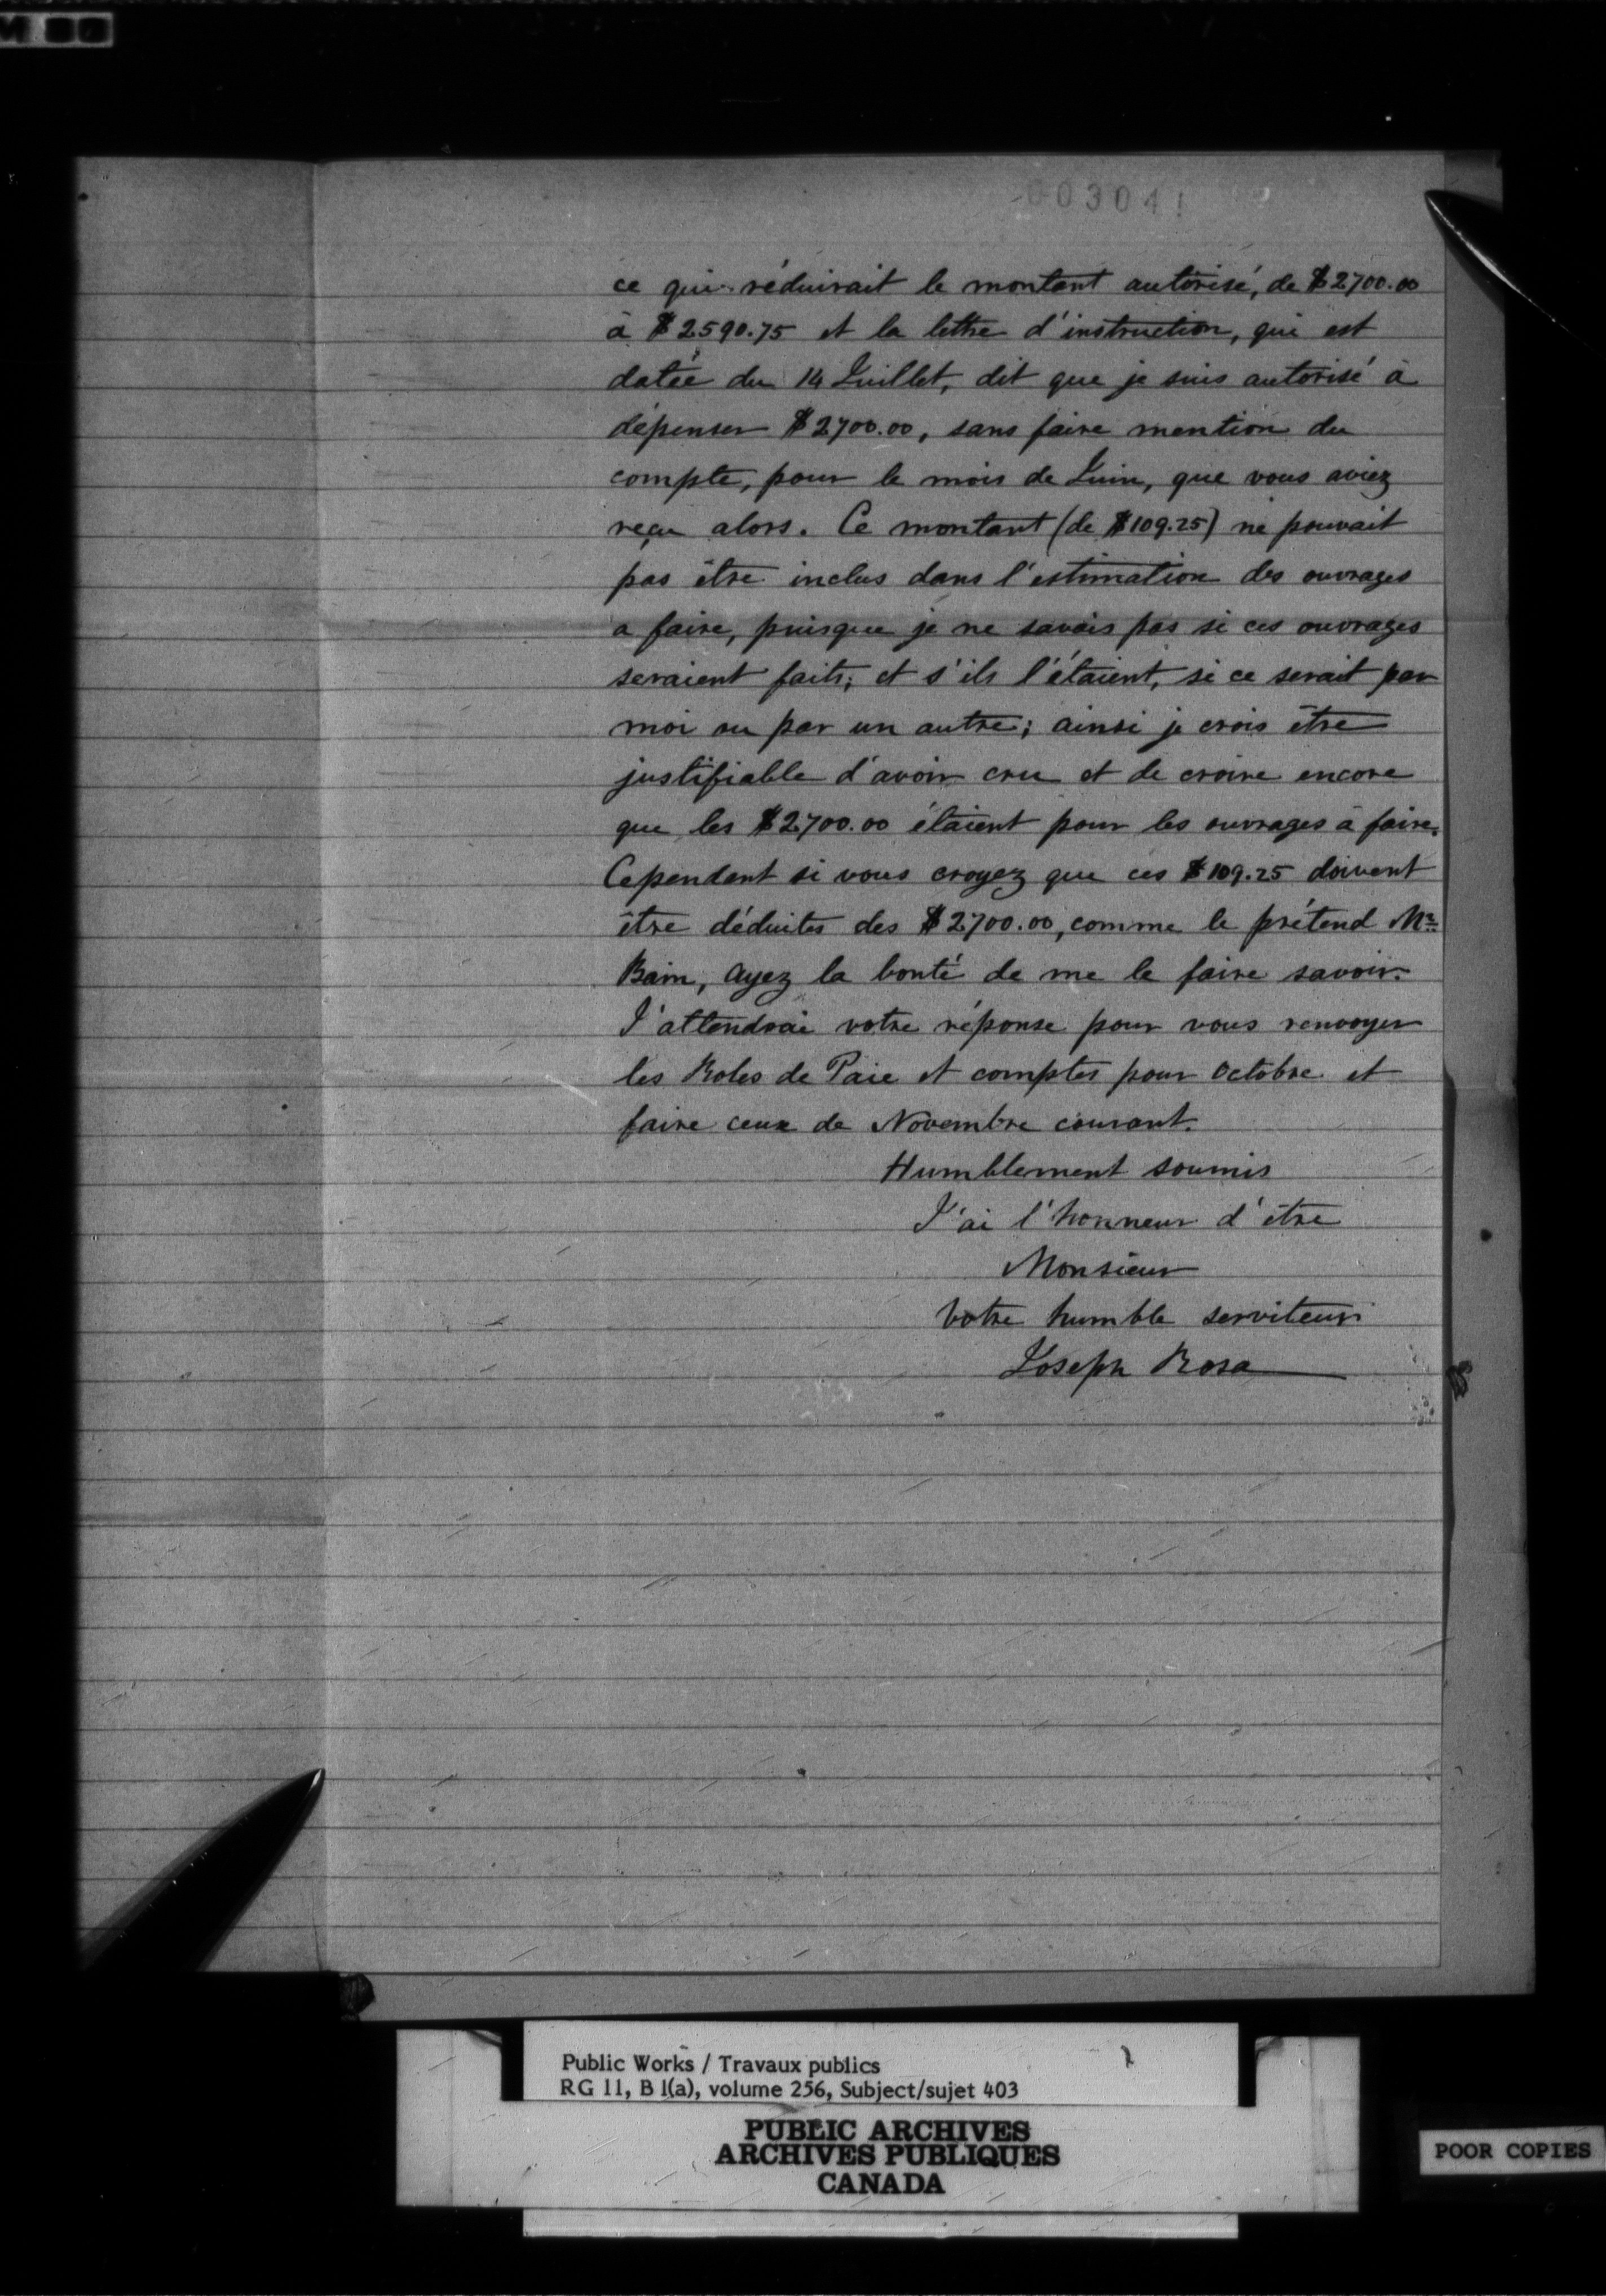 003041
ce qui réduirait le montant autorisé, de $2700.00
à $2590.75 et la lettre d'instruction, qui est
datée du 14 Juillet, dit que je suis autorisé à
dépenser $2700.00, sans faire mention du
compte, pour le mois de Juin, que vous aviez
reçu alors. Ce montant (de $109.25) ne pouvait
pas être inclus dans l'estimation des ouvrages
a faire, puisque je ne savais pas si ces ouvrages
seraient faits; et s'ils l'étaient, si ce serait par
moi ou par un autre; ainsi je crois être
justifiable d'avoir cru et de croire encore
que les $2700.00 étaient pour les ouvrages à faire.
Cependant si vous croyez que ces $109.25 doivent
être déduites des $2700.00, comme le prétend Mr
Bain, Ayez la bonté de me le faire savoir.
J'attendrai votre réponse pour vous renvoyer
les Roles de Paie et comptes pour Octobre et
faire ceux de Novembre courant.
Humblement soumis
J'ai l'honneur d'être
Monsieur
Votre humble serviteur
Joseph Rosa
Public Works / Travaux publics
RG 11, B 1(a), volume 256, Subject/sujet 403
PUBLIC ARCHIVES
ARCHIVES PUBLIQUES
CANADA
POOR COPIES